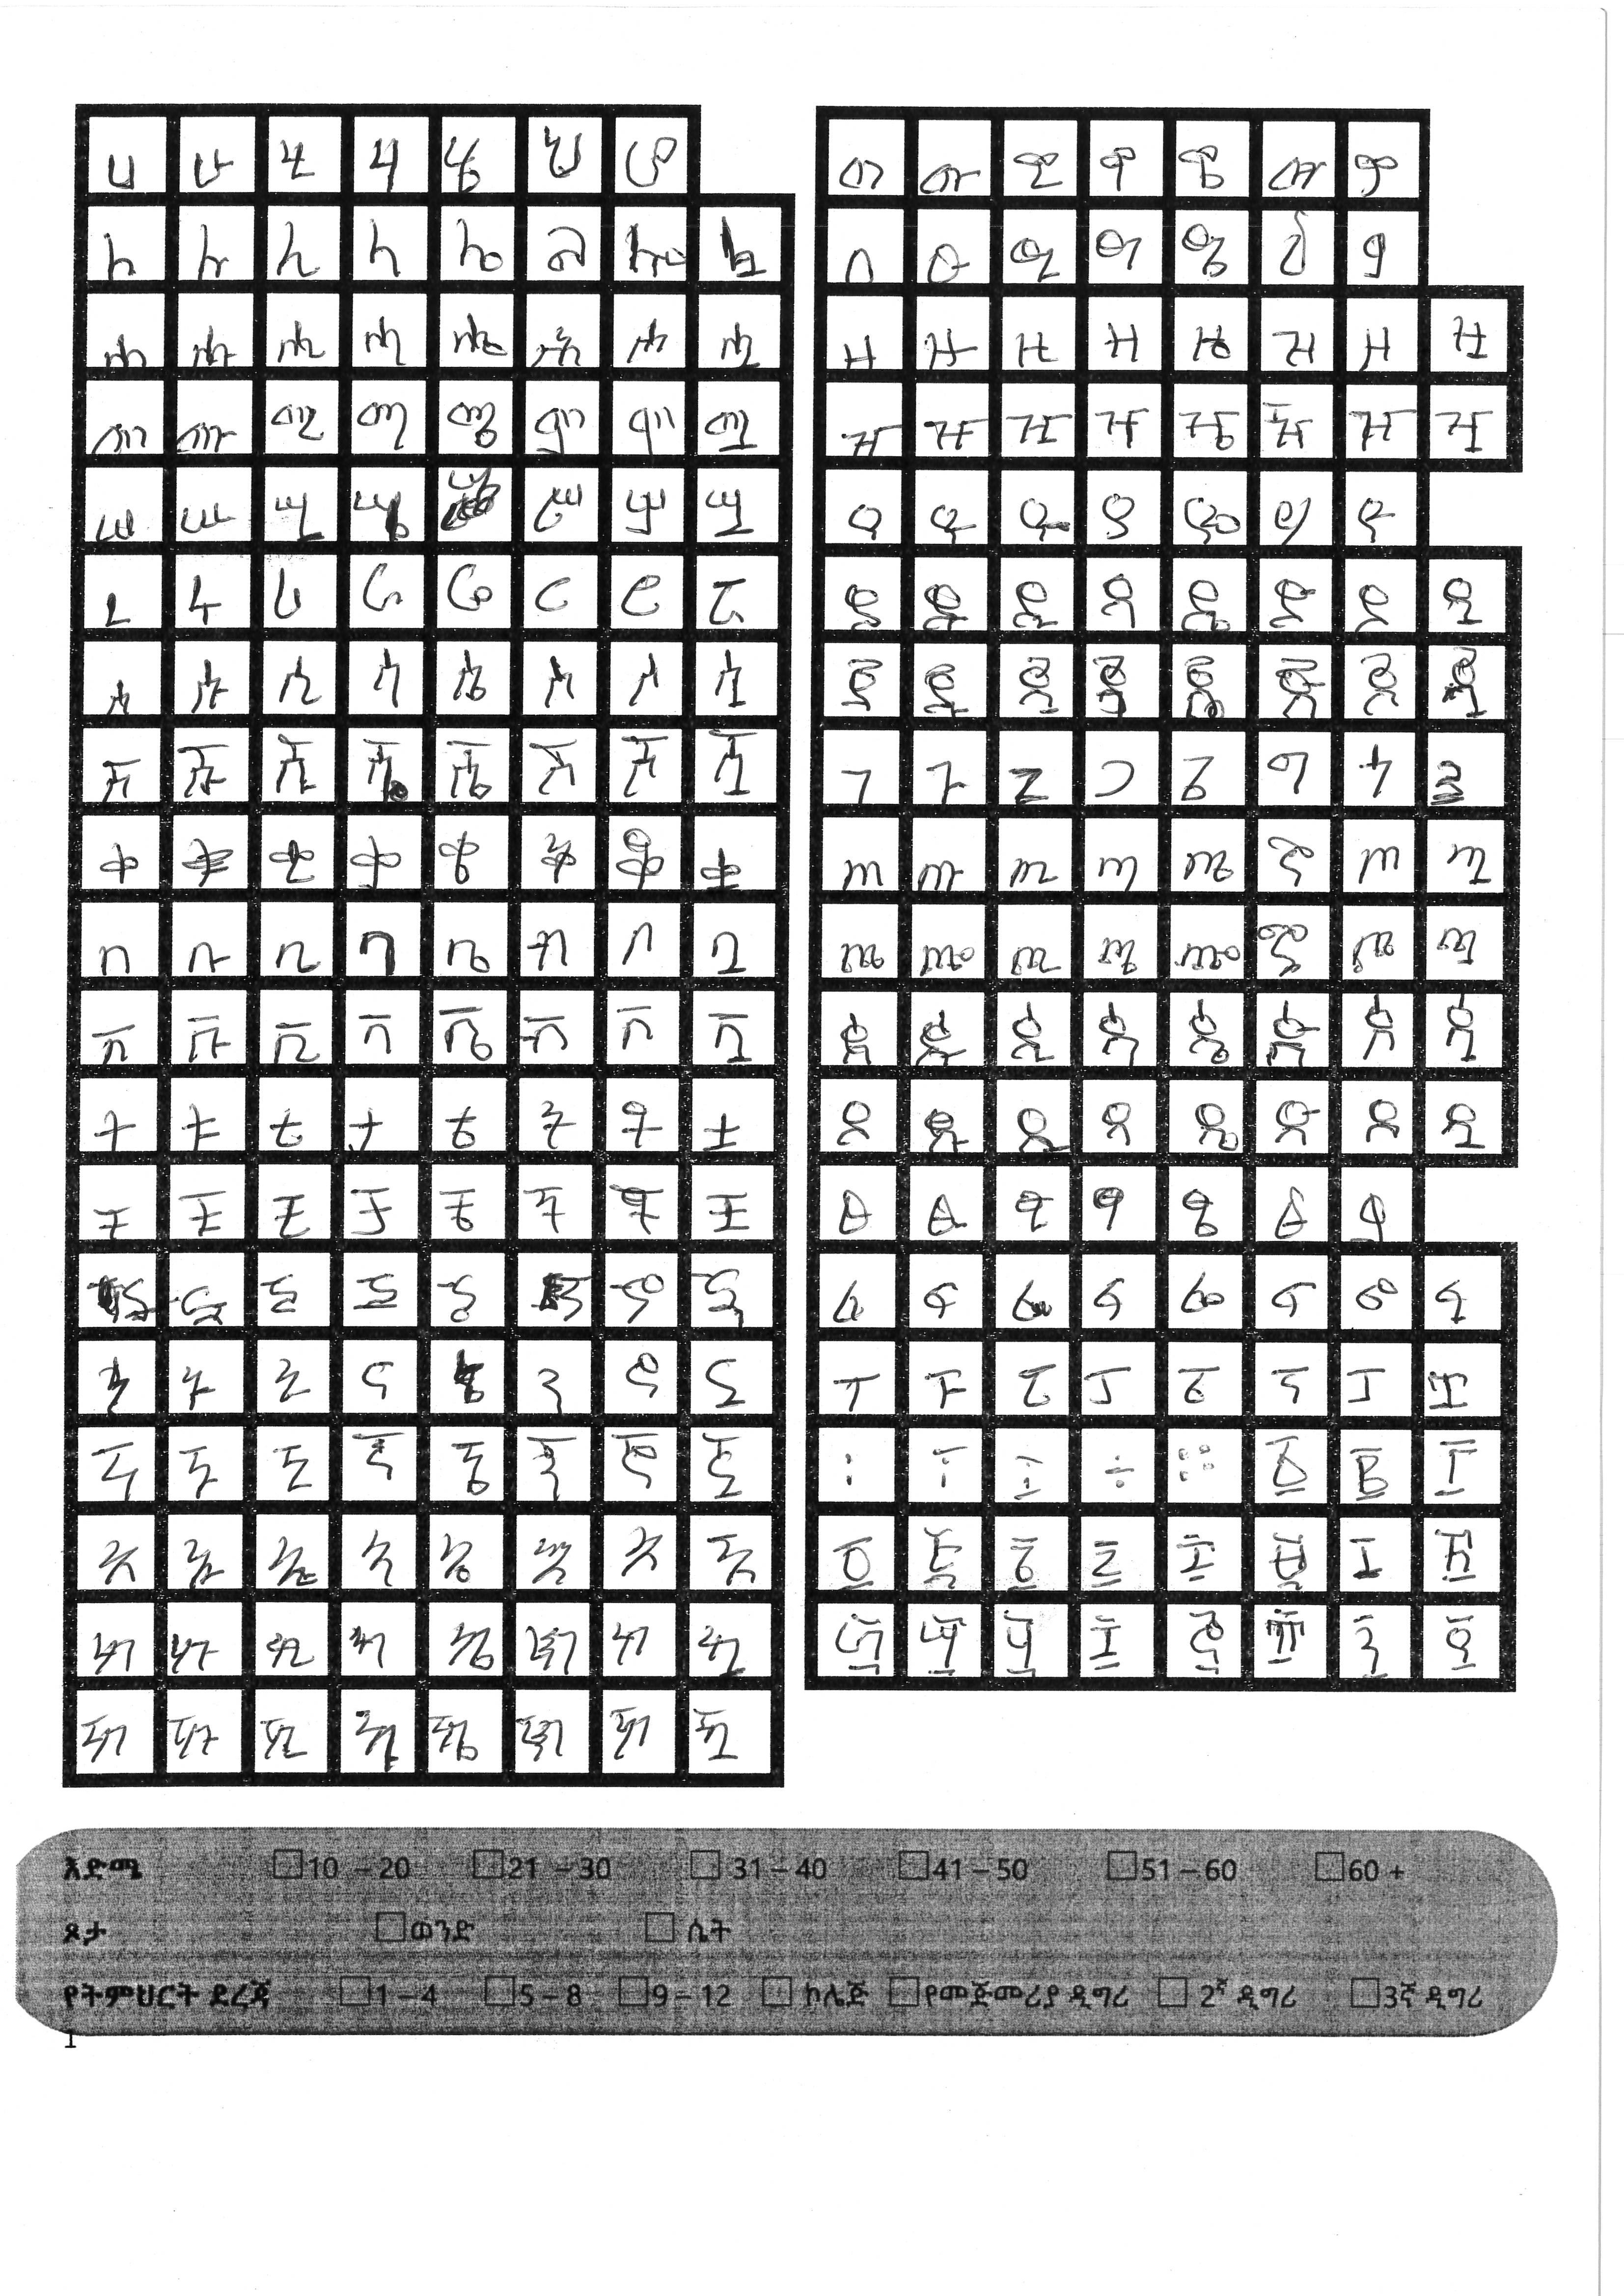 ሀ ሁ ሂ ሃ ሄ ህ ሆ
ለ ሉ ሊ ላ ሌ ል ሎ ሏ
ሐ ሑ ሒ ሓ ሔ ሕ ሖ ሗ
መ ሙ ሚ ማ ሜ ም ሞ ሟ
ሠ ሡ ሢ ሣ ሥ ሦ ሧ
ረ ሩ ሪ ራ ሬ ር ሮ ሯ
ሰ ሱ ሲ ሳ ሴ ስ ሶ ሷ
ሸ ሹ ሺ ሻ ሼ ሽ ሾ ሿ
ቀ ቁ ቂ ቃ ቄ ቅ ቆ ቋ
በ ቡ ቢ ባ ቤ ብ ቦ ቧ
ቨ ቩ ቪ ቫ ቬ ቭ ቮ ቯ
ተ ቱ ቲ ታ ቴ ት ቶ ቷ
ቸ ቹ ቺ ቻ ቼ ች ቾ ቿ
ነ ኑ ኒ ና ኔ ን ኖ ኗ
ኘ ኙ ኚ ኛ ኜ ኝ ኞ ኟ
አ ኡ ኢ ኣ ኤ እ ኦ ኧ
ከ ኩ ኪ ካ ኬ ክ ኮ ኳ
ኸ ኹ ኺ ኻ ኼ ኽ ኾ
ወ ዉ ዊ ዋ ዌ ው ዎ
ዐ ዑ ዒ ዓ ዔ ዕ ዖ
ዘ ዙ ዚ ዛ ዜ ዝ ዞ ዟ
ዠ ዡ ዢ ዣ ዤ ዥ ዦ ዧ
የ ዩ ዪ ያ ዬ ይ ዮ
ደ ዱ ዲ ዳ ዴ ድ ዶ ዷ
ጀ ጁ ጂ ጃ ጄ ጅ ጆ ጇ
ገ ጉ ጊ ጋ ጌ ግ ጎ ጓ
ጠ ጡ ጢ ጣ ጤ ጥ ጦ ጧ
ጨ ጩ ጪ ጫ ጬ ጭ ጮ ጯ
ጰ ጱ ጲ ጳ ጴ ጵ ጶ ጷ
ጸ ጹ ጺ ጻ ጼ ጽ ጾ ጿ
ፀ ፁ ፂ ፃ ፄ ፅ ፆ
ፈ ፉ ፊ ፋ ፌ ፍ ፎ ፏ
ፐ ፑ ፒ ፓ ፔ ፕ ፖ ፗ
፡ ፣ ፤ ÷ ። ፩ ፪ ፫
፬ ፭ ፮ ፯ ፰ ፱ ፲ ፳
፴ ፵ ፶ ፷ ፸ ፹ ፺ ፻
እድሜ 10 – 20 21 – 30 31 – 40 41 – 50 51 – 60 60 +
ጾታ ወንድ ሴት
የትምህርት ደረጃ 1 – 4 5 – 8 9 – 12 ኮሌጅ የመጀመሪያ ዲግሪ 2ኛ ዲግሪ 3ኛ ዲግሪ
1